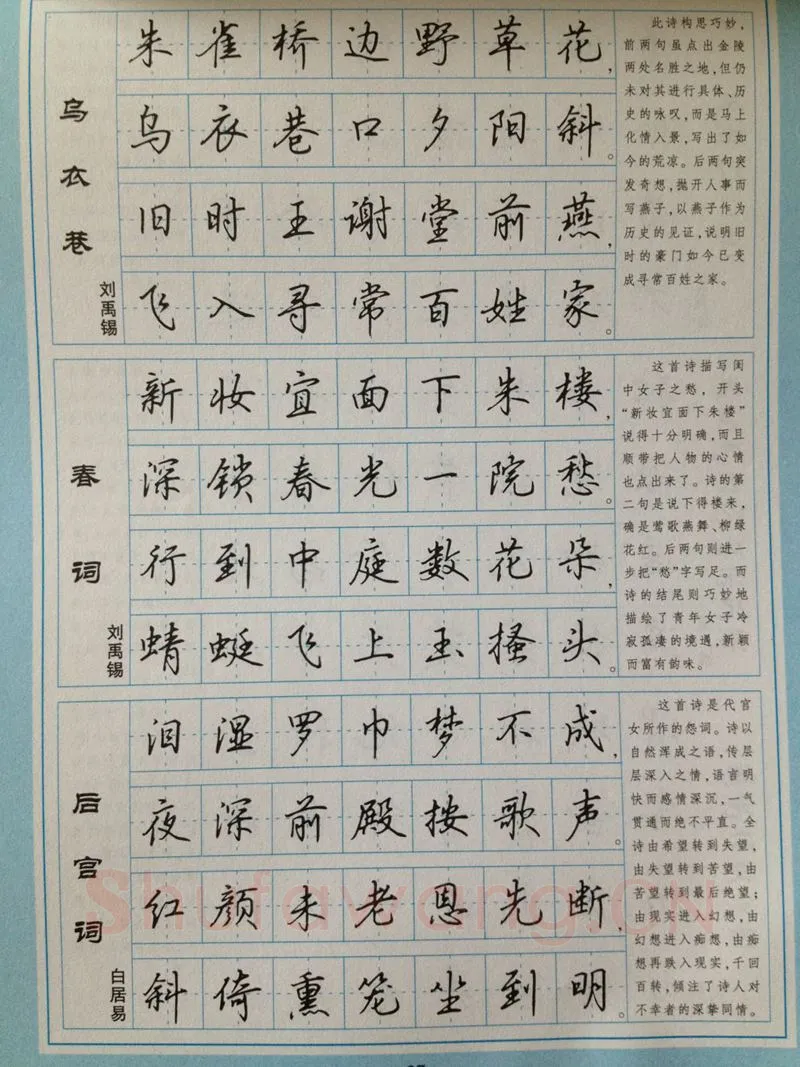 乌衣巷
刘禹锡
朱雀桥边野草花，
乌衣巷口夕阳斜。
旧时王谢堂前燕，
飞入寻常百姓家。
此诗构思巧妙，
前两句虽点出金陵
两处名胜之地，但仍
未对其进行具体、历
史的咏叹，而是马上
化情入景，写出了如
今的荒凉。后两句突
发奇想，抛开人事而
写燕子，以燕子作为
历史的见证，说明旧
时的豪门如今已变
成寻常百姓之家。
春词
刘禹锡
新妆宜面下朱楼，
深锁春光一院愁。
行到中庭数花朵，
蜻蜓飞上玉搔头。
这首诗描写闺
中女子之愁，开头
“新妆宜面下朱楼”
说得十分明确，而且
顺带把人物的心情
也点出来了。诗的第
二句是说下得楼来，
确是莺歌燕舞、柳绿
花红。后两句则进一
步把“愁”字写足。而
诗的结尾则巧妙地
描绘了青年女子冷
寂孤凄的境遇，新颖
而富有韵味。
后宫词
白居易
泪湿罗巾梦不成，
夜深前殿按歌声。
红颜未老恩先断，
斜倚熏笼坐到明。
这首诗是代宫
女所作的怨词。诗以
自然浑成之语，传层
层深入之情，语言明
快而感情深沉，一气
贯通而绝不平直。全
诗由希望转到失望，
由失望转到苦望，由
苦望转到最后绝望；
由现实进入幻想，由
幻想进入痴想，由痴
想再跌入现实，千回
百转，倾注了诗人对
不幸者的深挚同情。